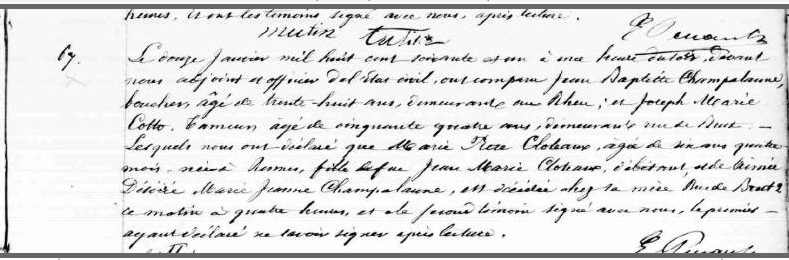 heures, et ont les témoins signé avec nous, après lecture.
Mutin
67. Le douze Janvier mil huit cent soixante et un à une heure du soir, devant
nous adjoint et officier de l'état civil, ont comparu Jean Baptiste Champalaune,
boucher, âgé de trente-huit ans, demeurant au Rheu; et Joseph Marie
Cotto, Tanneur âgé de cinquante quatre ans, demeurant rue de Brest. —
Lesquels nous ont déclaré que Marie Rose Cloteaux, agée de six ans quatre
mois, née à Rennes, fille de feu Jean Marie Cloteaux, débitant, et de Aimée
Désirée Marie Jeanne Champalaune, est décédée chez sa mère Rue de Brest 2
ce matin à quatre heures, et a le second témoin signé avec nous, le premier —
ayant déclaré ne savoir signer après lecture.